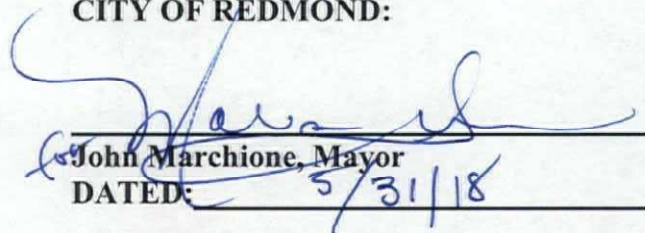 CITY OF REDMOND:
for John Marchione, Mayor
DATED: 5/31/18